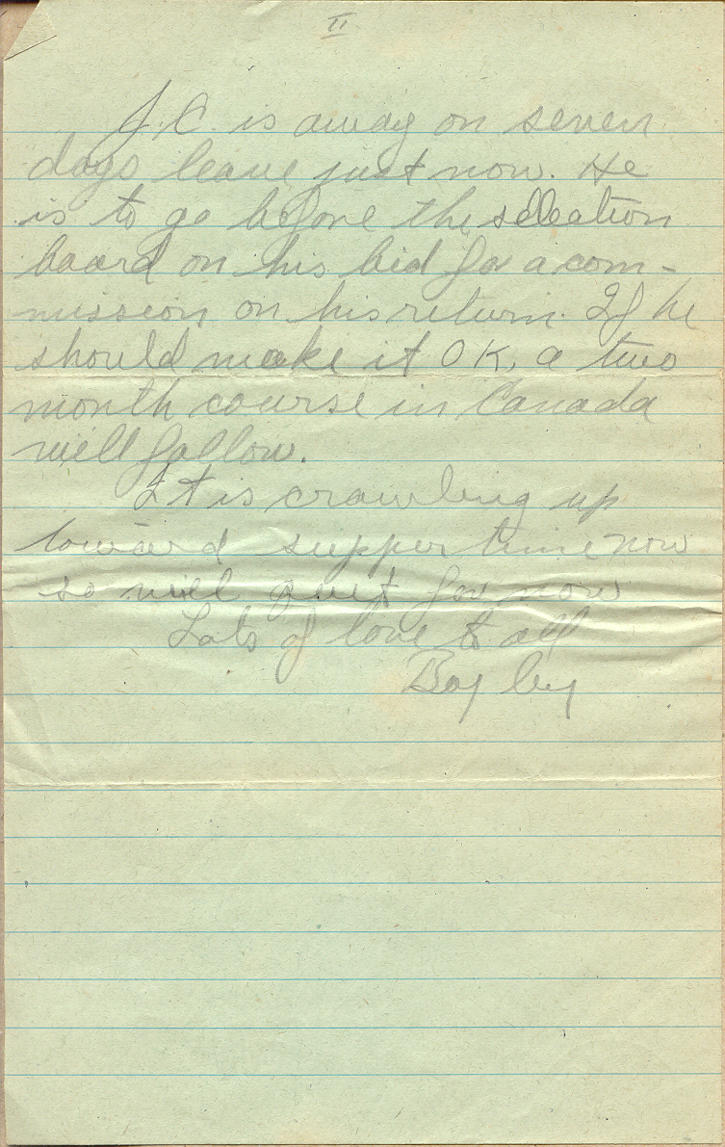 II
J.C. is away on seven
days leave just now. He
is to go before the selection
board on his bid for a com-
mission on his return. If he
should make it OK, a two
month course in Canada
will follow.
It is crawling up
toward supper time now
so will quit for now
Lots of love to all
Bagley